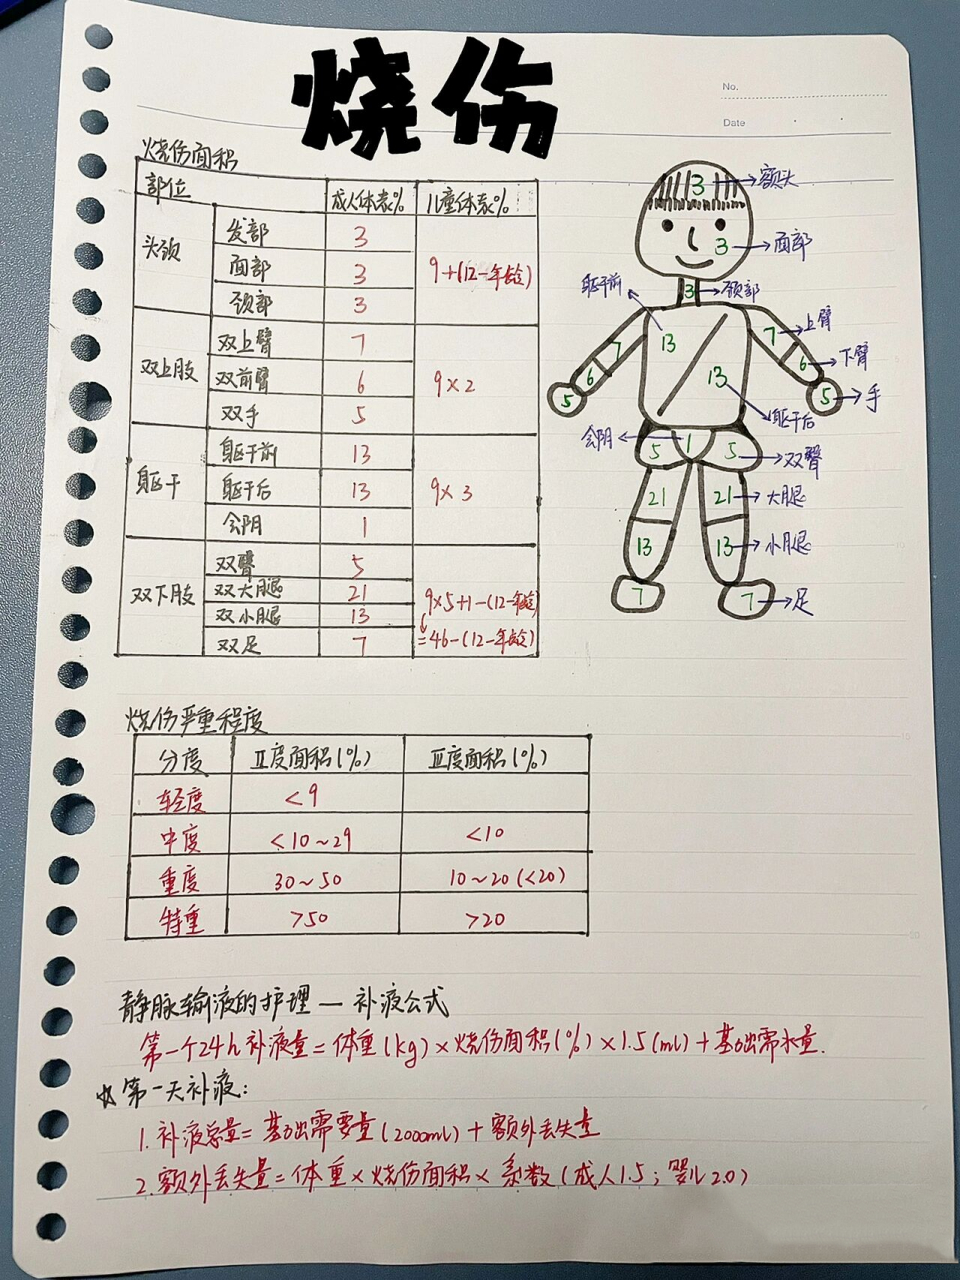 烧伤
No.
Date
烧伤面积
部位 成人体表% 儿童体表%
头颈 发部 3 9+(12-年龄)
面部 3
颈部 3
双上肢 双上臂 7 9×2
双前臂 6
双手 5
躯干 躯干前 13 9×3
躯干后 13
会阴 1
双下肢 双臀 5 9×5+1-(12-年龄)
双大腿 21 =46-(12-年龄)
双小腿 13
双足 7
3 额头
3 面部
躯干前 3 颈部
7 13 7 上臂
6 13 6 下臂
5 5 手
躯干后
会阴 5 1 5 双臀
21 21 大腿
13 13 小腿
7 7 足
烧伤严重程度
分度 Ⅱ度面积(%) Ⅲ度面积(%)
轻度 <9
中度 <10~29 <10
重度 30~50 10~20(<20)
特重 >50 >20
静脉输液的护理—补液公式
第一个24h补液量=体重(kg)×烧伤面积(%)×1.5(ml)+基础需水量.
☆第一天补液:
1.补液总量=基础需要量(2000ml)+额外丢失量
2.额外丢失量=体重×烧伤面积×系数(成人1.5;婴儿2.0)